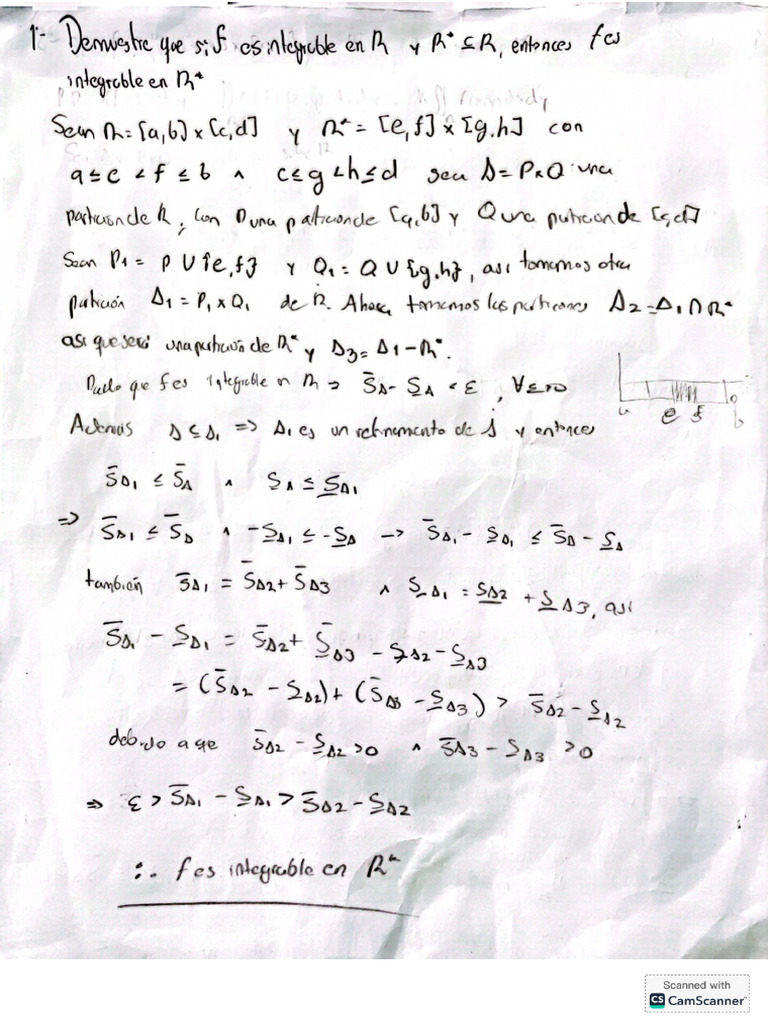 1:- Demuestre que si f es integrable en R y R* ⊆ R, entonces f es
integrable en R*
Sean R = [a,b] x [c,d] y R* = [e,f] x [g,h] con
a ≤ e < f ≤ b ∧ c ≤ g < h ≤ d sea Δ = P x Q una
particion de R, con P una particion de [a,b] y Q una particion de [c,d]
Sean P1 = P ∪ {e,f} y Q1 = Q ∪ {g,h}, asi tomemos otra
partición Δ1 = P1 x Q1 de R. Ahora tomemos las particiones Δ2 = Δ1 ∩ R*
asi que será una partición de R* y Δ3 = Δ1 - R*.
Dado que f es integrable en R => S̄Δ - S̲Δ < ε, ∀ε>0
a e f b
Además Δ ⊆ Δ1 => Δ1 es un refinamento de Δ y entonces
S̄Δ1 ≤ S̄Δ ∧ S̲Δ ≤ S̲Δ1
=> S̄Δ1 ≤ S̄Δ ∧ -S̲Δ1 ≤ -S̲Δ -> S̄Δ1 - S̲Δ1 ≤ S̄Δ - S̲Δ
también S̄Δ1 = S̄Δ2 + S̄Δ3 ∧ S̲Δ1 = S̲Δ2 + S̲Δ3, asi
S̄Δ1 - S̲Δ1 = S̄Δ2 + S̄Δ3 - S̲Δ2 - S̲Δ3
= (S̄Δ2 - S̲Δ2) + (S̄Δ3 - S̲Δ3) > S̄Δ2 - S̲Δ2
debido a que S̄Δ2 - S̲Δ2 > 0 ∧ S̄Δ3 - S̲Δ3 > 0
=> ε > S̄Δ1 - S̲Δ1 > S̄Δ2 - S̲Δ2
∴ f es integrable en R*
Scanned with
CS CamScanner